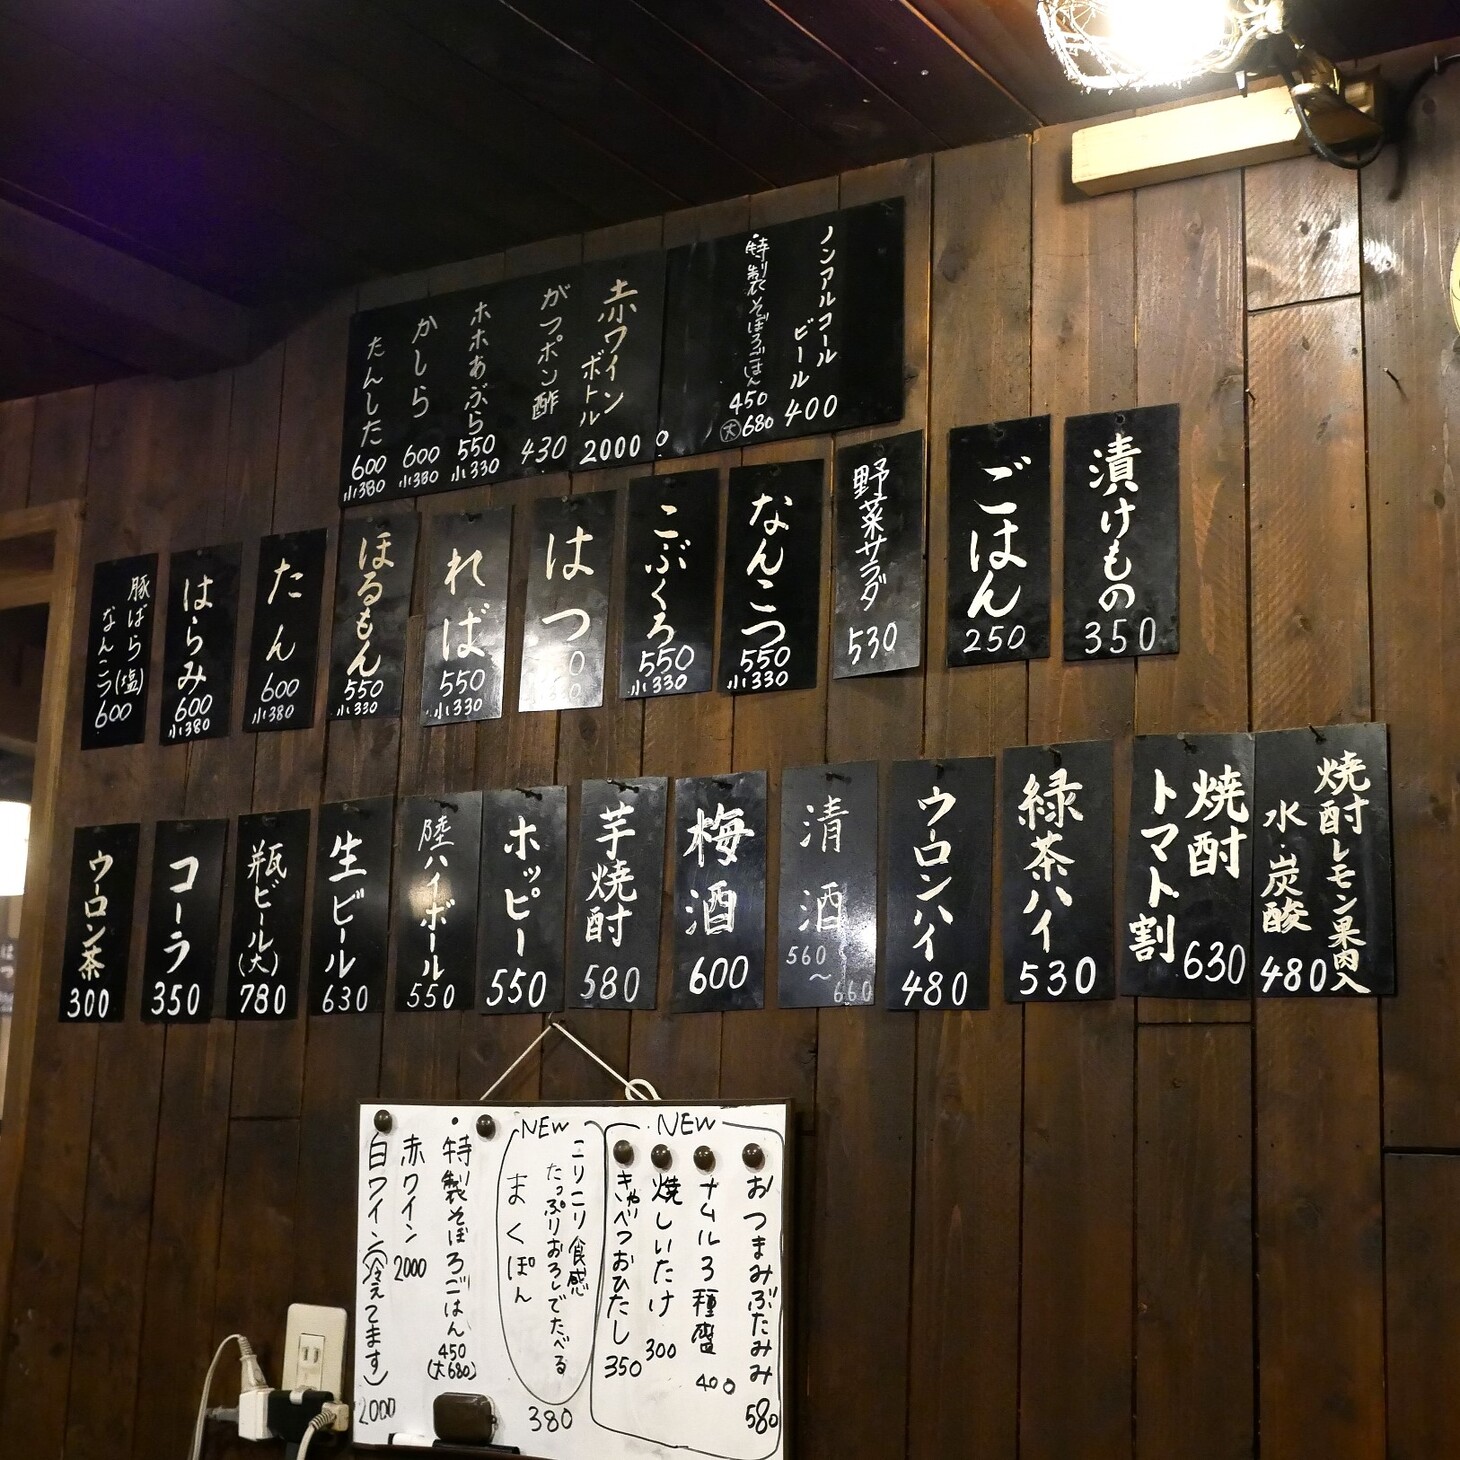 ノンアルコール
ビール
400
特製そぼろごはん
450
大 680
赤ワイン
ボトル
2000
がつポン酢
430
ホホあぶら
550
小330
かしら
600
小380
たんした
600
小380
漬けもの
350
ごはん
250
野菜サラダ
530
なんこつ
550
小330
こぶくろ
550
小330
はつ
れば
550
小330
ほるもん
550
小330
たん
600
小380
はらみ
600
小380
豚ばら(塩)
なんこつ
600
焼酎レモン果肉入
水・炭酸
480
焼酎
トマト割
630
緑茶ハイ
530
ウーロンハイ
480
清酒
560
〜
660
梅酒
600
芋焼酎
580
ホッピー
550
陸ハイボール
550
生ビール
630
瓶ビール(大)
780
コーラ
350
ウーロン茶
300
NEW
おつまみぶたみみ
580
ナムル3種盛
400
焼しいたけ
300
きゃべつおひたし
350
NEW
こりこり食感
たっぷりおろしでたべる
まくぽん
380
特製そぼろごはん
450
(大680)
赤ワイン
2000
白ワイン(冷えてます)
2000